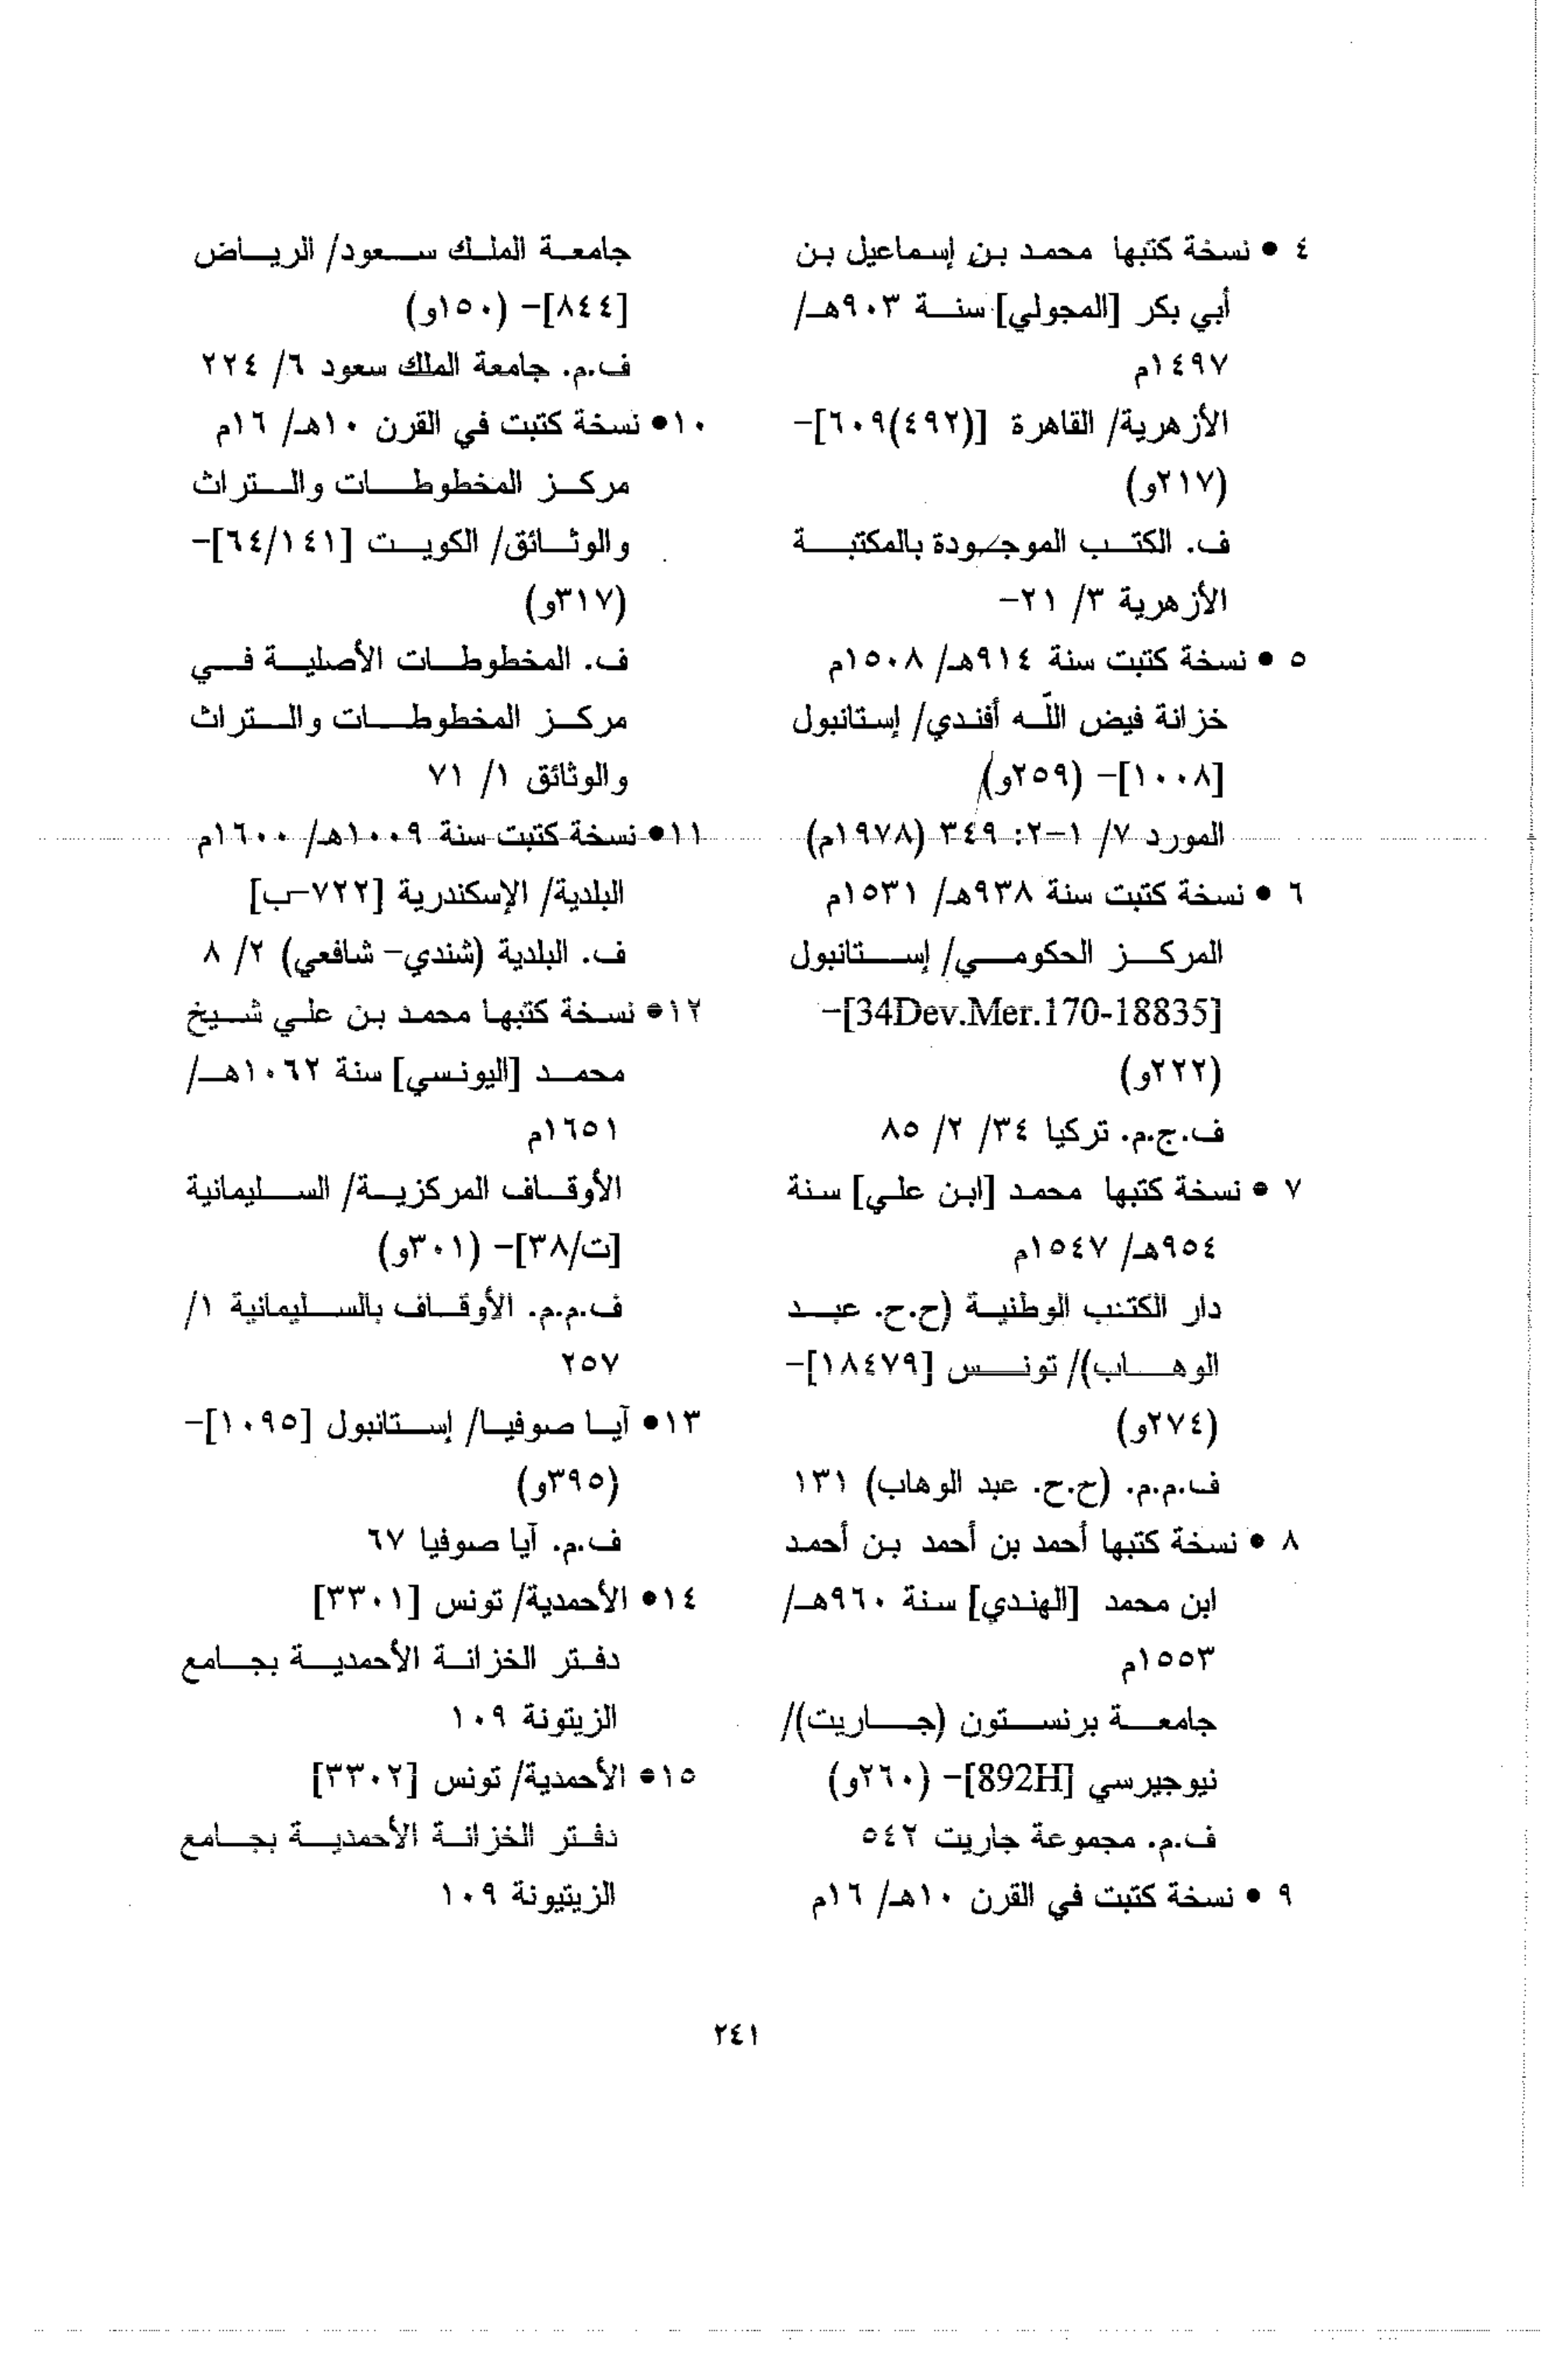 ٤ • نسخة كتبها محمد بن إسماعيل بن
أبي بكر [المجولي] سنة ٩٠٣هـ/
١٤٩٧م
الأزهرية/ القاهرة [(٤٩٢)٦٠٩]-
(٢١٧و)
ف. الكتب الموجودة بالمكتبة
الأزهرية ٣/ ٢١-
٥ • نسخة كتبت سنة ٩١٤هـ/ ١٥٠٨م
خزانة فيض اللّه أفندي/ إستانبول
[١٠٠٨]- (٢٥٩و)
المورد ٧/ ١-٢: ٣٤٩ (١٩٧٨م)
٦ • نسخة كتبت سنة ٩٣٨هـ/ ١٥٣١م
المركز الحكومي/ إستانبول
[34Dev.Mer.170-18835]-
(٢٢٢و)
ف.ج.م. تركيا ٣٤/ ٢/ ٨٥
٧ • نسخة كتبها محمد [ابن علي] سنة
٩٥٤هـ/ ١٥٤٧م
دار الكتب الوطنية (ح.ح. عبد
الوهاب)/ تونس [١٨٤٧٩]-
(٢٧٤و)
ف.م.م. (ح.ح. عبد الوهاب) ١٣١
٨ • نسخة كتبها أحمد بن أحمد بن أحمد
ابن محمد [الهندي] سنة ٩٦٠هـ/
١٥٥٣م
جامعة برنستون (جاريت)/
نيوجيرسي [892H]- (٢٦٠و)
ف.م. مجموعة جاريت ٥٤٢
٩ • نسخة كتبت في القرن ١٠هـ/ ١٦م
جامعة الملك سعود/ الرياض
[٨٤٤]- (١٥٠و)
ف.م. جامعة الملك سعود ٦/ ٢٢٤
١٠• نسخة كتبت في القرن ١٠هـ/ ١٦م
مركز المخطوطات والتراث
والوثائق/ الكويت [٦٤/١٤١]-
(٣١٧و)
ف. المخطوطات الأصلية في
مركز المخطوطات والتراث
والوثائق ١/ ٧١
١١• نسخة كتبت سنة ١٠٠٩هـ/ ١٦٠٠م
البلدية/ الإسكندرية [٧٢٢-ب]
ف. البلدية (شندي- شافعي) ٢/ ٨
١٢• نسخة كتبها محمد بن علي شيخ
محمد [اليونسي] سنة ١٠٦٢هـ/
١٦٥١م
الأوقاف المركزية/ السليمانية
[ت/٣٨]- (٣٠١و)
ف.م.م. الأوقاف بالسليمانية ١/
٢٥٧
١٣• آيا صوفيا/ إستانبول [١٠٩٥]-
(٣٩٥و)
ف.م. آيا صوفيا ٦٧
١٤• الأحمدية/ تونس [٣٣٠١]
دفتر الخزانة الأحمدية بجامع
الزيتونة ١٠٩
١٥• الأحمدية/ تونس [٣٣٠٢]
دفتر الخزانة الأحمدية بجامع
الزيتيونة ١٠٩
٢٤١